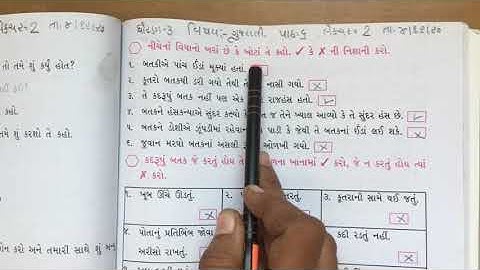 ેક્ચર-2 તા.૪/૬/૨૦૨૦
ધોરણ-૩ વિષય:-ગુજરાતી પાઠ-૬ લેક્ચર-2 તા.-૪/૬/૨૦૨૦
નીચેનાં વિધાનો ખરાં છે કે ખોટાં તે કહો. ✓ કે ✗ ની નિશાની કરો.
૧. બતકીએ પાંચ ઈંડાં મૂક્યાં હતાં.
૨. કૂતરો બતકથી ડરી ગયો તેથી નાસી ગયો. ✗
૩. તે કદરૂપું બતક નહીં પણ એક રાજહંસ હતો. ✓
૪. બતકને હંસકન્યાએ સુંદર કહ્યો જ તેને ખ્યાલ આવ્યો કે તે સુંદર હંસ છે. ✓
૫. બતકને ડોશીએ ઝૂંપડીમાં રહેવાન પાડી કે જેથી બતકનાં ઈંડાં લઈ શકે. ✗
૬. જુવાન મરઘો બતકની અસલી ઓળખી ગયો. ✗
કદરૂપું બતક જે કરતું હોય તે ખાનામાં ✓ કરો, જે ન કરતું હોય ત્યાં
✗ કરો.
૧. ખૂબ ઊંચે ઊડતું. ✗
૨. તરતું.
૩. કૂતરાની સામે થઈ જતું. ✗
૪. પોતાનું પ્રતિબિંબ જોવા
અરીસો રાખતું. ✗
કદી રડતું નહીં. ✗
તો તમે શું કર્યું હોત?
શું કરશો તે કહો.
ોન કરો અને તમારી સાથે શું બન